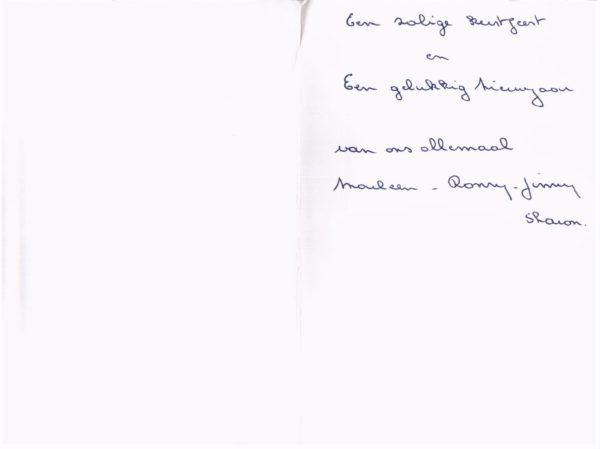 Een zalige Kerstfeest
en
Een gelukkig Nieuwjaar
van ons allemaal
Marleen - Ronny - Jimmy
Sharon.